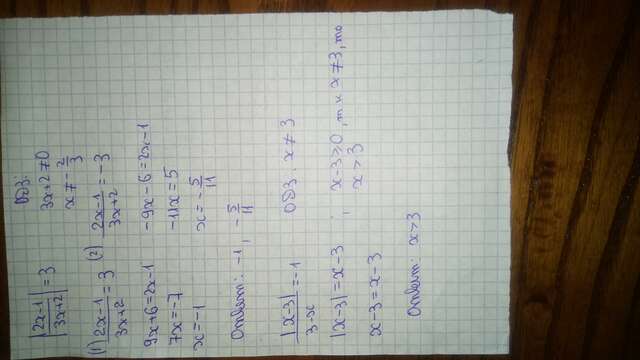 |2x-1/3x+2| = 3 ОДЗ:
3x+2≠0
x≠-2/3
(1) 2x-1/3x+2 = 3 (2) 2x-1/3x+2 = -3
9x+6=2x-1 -9x-6=2x-1
7x=-7 -11x=5
x=-1 x=-5/11
Ответ: -1, -5/11
|x-3|/3-x = -1 ОДЗ: x≠3
|x-3|=x-3 ; x-3≥0, т.к x≠3, то
x-3=x-3 x>3
Ответ: x>3